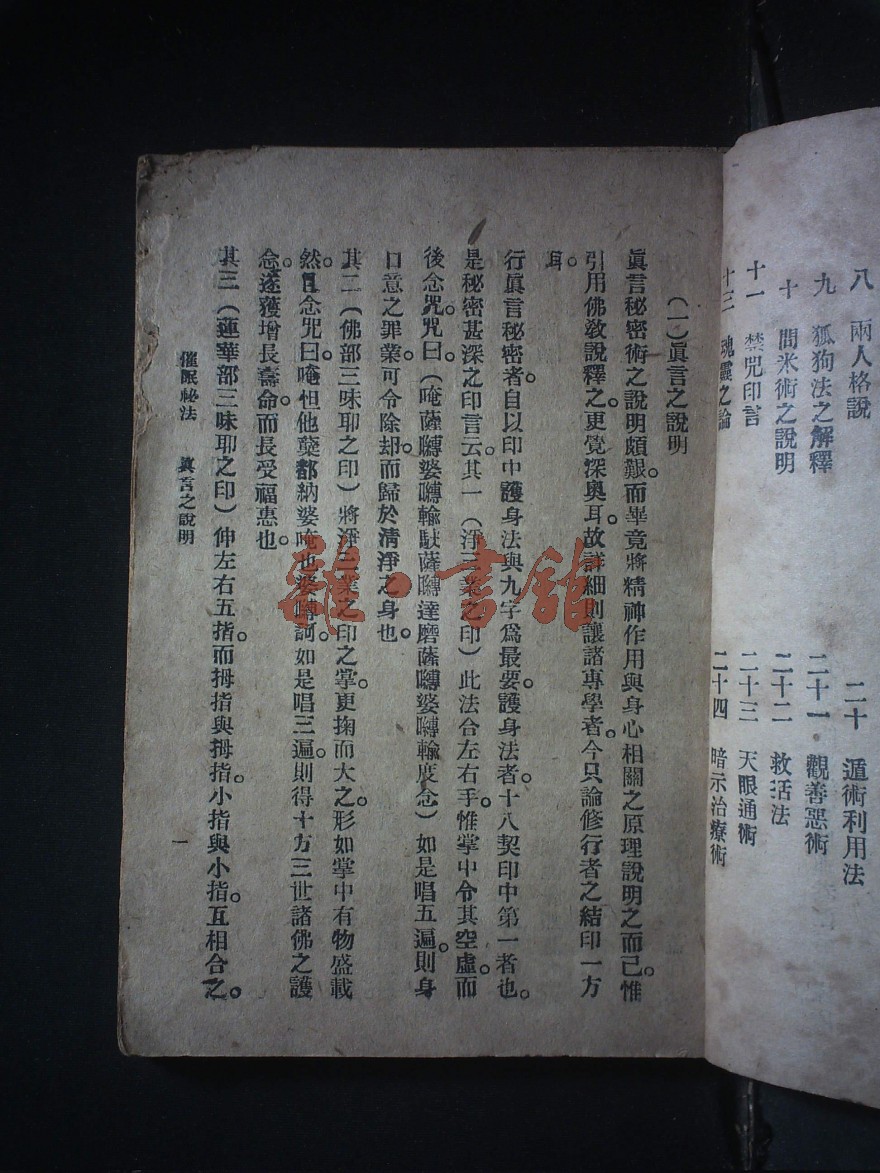 八　兩人格說　二十　遁術利用法
九　狐狗法之解釋　二十一　觀善惡術
十　問米術之說明　二十二　救活法
十一　禁咒印言　二十三　天眼通術
十二　魂靈之論　二十四　暗示治療術
（一）眞言之說明
眞言秘密術之說明頗艱。而畢竟將精神作用與身心相關之原理說明之而已。惟
引用佛敎說釋之。更覺深奧耳。故詳細則讓諸專學者。今只論修行者之結印一方
耳。
行眞言秘密者。自以印中護身法與九字爲最要。護身法者。十八契印中第一者也。
是秘密甚深之印言云。其一（淨三業之印）此法合左右手。惟掌中令其空虛。而
後念咒。咒曰。（唵薩嚩婆嚩輸馱薩嚩達磨薩嚩婆嚩輸度念）如是唱五遍。則身
口意之罪業。可令除却。而歸於清淨之身也。
其二（佛部三昧耶之印）將淨三業之印之掌。更掬而大之。形如掌中有物盛載
然。且念咒曰。唵怛他蘖都納婆唵也婆嚩訶。如是唱三遍。則得十方三世諸佛之護
念。遂獲增長壽命。而長受福惠也。
其三（蓮華部三昧耶之印）伸左右五指。而拇指與拇指。小指與小指。互相合之。
催眠秘法　眞言之說明　一
雜·書館